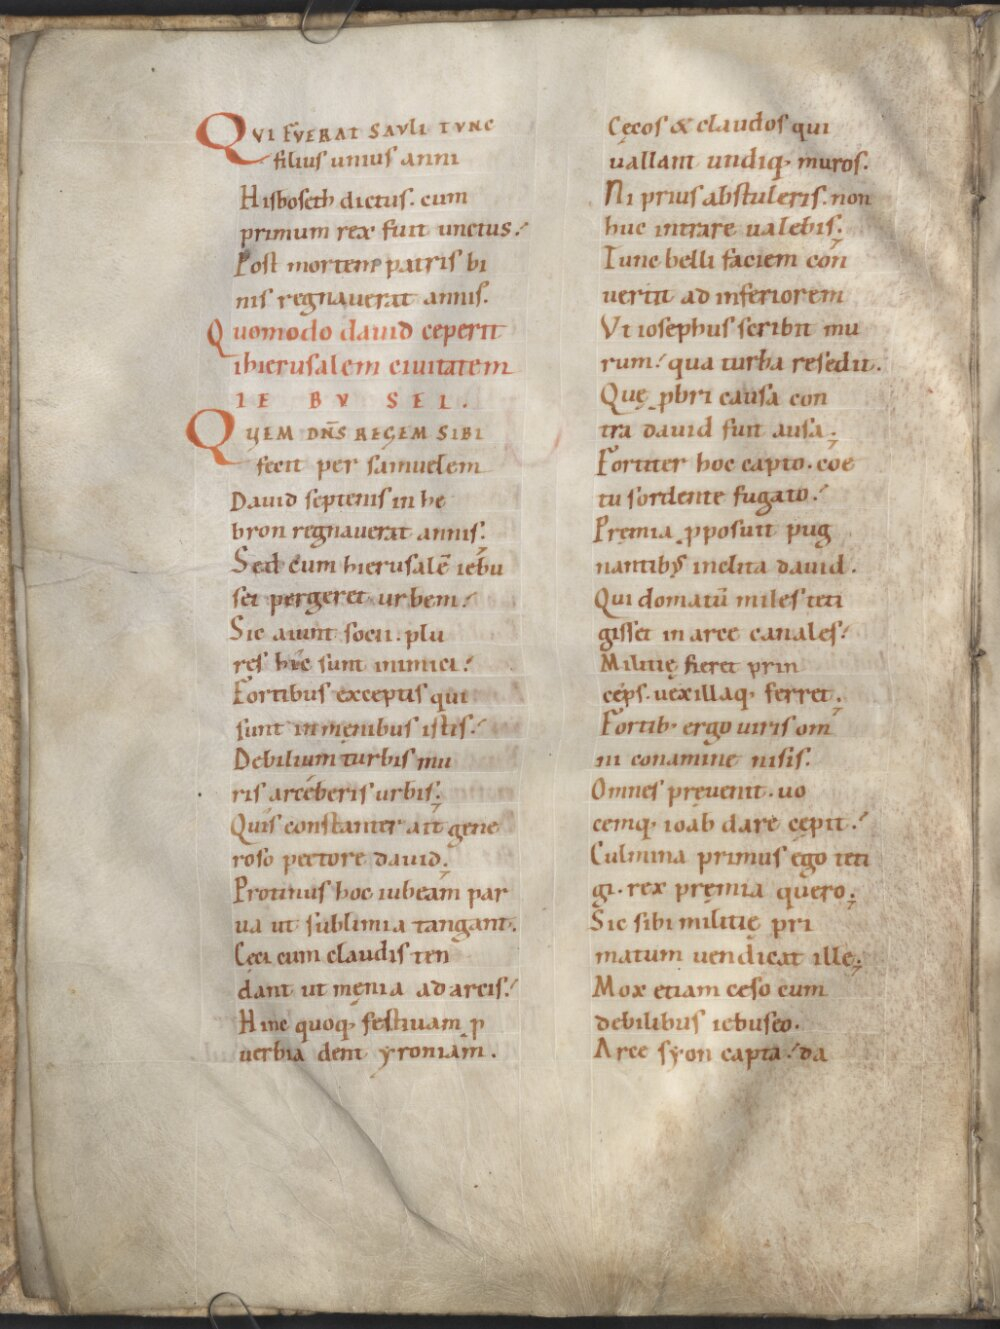 QVI FVERAT SAVLI TVNC
filius unius anni
Hisboseth dictus. cum
primum rex fuit unctus.
Post mortem patris bi
nis regnauerat annis.
Quomodo dauid ceperit
ihierusalem ciuitatem
IE BV SEI.
QVEM DN̄S REGEM SIBI
fecit per samuelem
Dauid septenis in he
bron regnauerat annis.
Sed cum hierusalē iebu
sei pergeret urbem.
Sic aiunt socii. plu
res hic sunt inimici.
Fortibus exceptis qui
sunt in męnibus istis.
Debilium turbis mu
ris arceberis urbis.
Quis constanter ait gene
roso pectore dauid.
Protinus hoc iubeam par
ua ut sublimia tangant.
Ceci cum claudis ten
dant ut męnia ad arcis.
Hinc quoq; festiuam ꝓ
uerbia dent yroniam.
Cęcos & claudos qui
uallant undiq; muros.
Ni prius abstuleris. non
huc intrare ualebis.
Tunc belli faciem con
uertit ad inferiorem
Vt iosephus scribit mu
rum. qua turba resedit.
Quę ꝓbri causa con
tra dauid fuit ausa.
Fortiter hoc capto. coe
tu sordente fugato.
Pręmia ꝓposuit pug
nantibꝰ inclita dauid.
Qui domatū miles teti
gisset in arce canales.
Militię fieret prin
ceps. uexillaq; ferret.
Fortib; ergo uiris om
ni conamine nisis.
Omnes pręuenit. uo
cemq; ioab dare cępit.
Culmina primus ego teti
gi. rex pręmia quero.
Sic sibi militię pri
matum uendicat ille.
Mox etiam ceso cum
debilibus iebuseo.
Arce syon capta. da